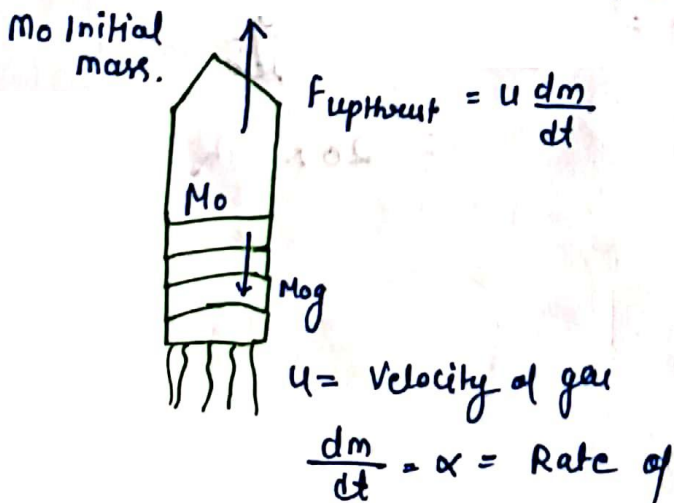 Mo Initial
mass.
Fupthrust = u dm/dt
Mo
Mog
u = Velocity of gas
dm/dt = α = Rate of